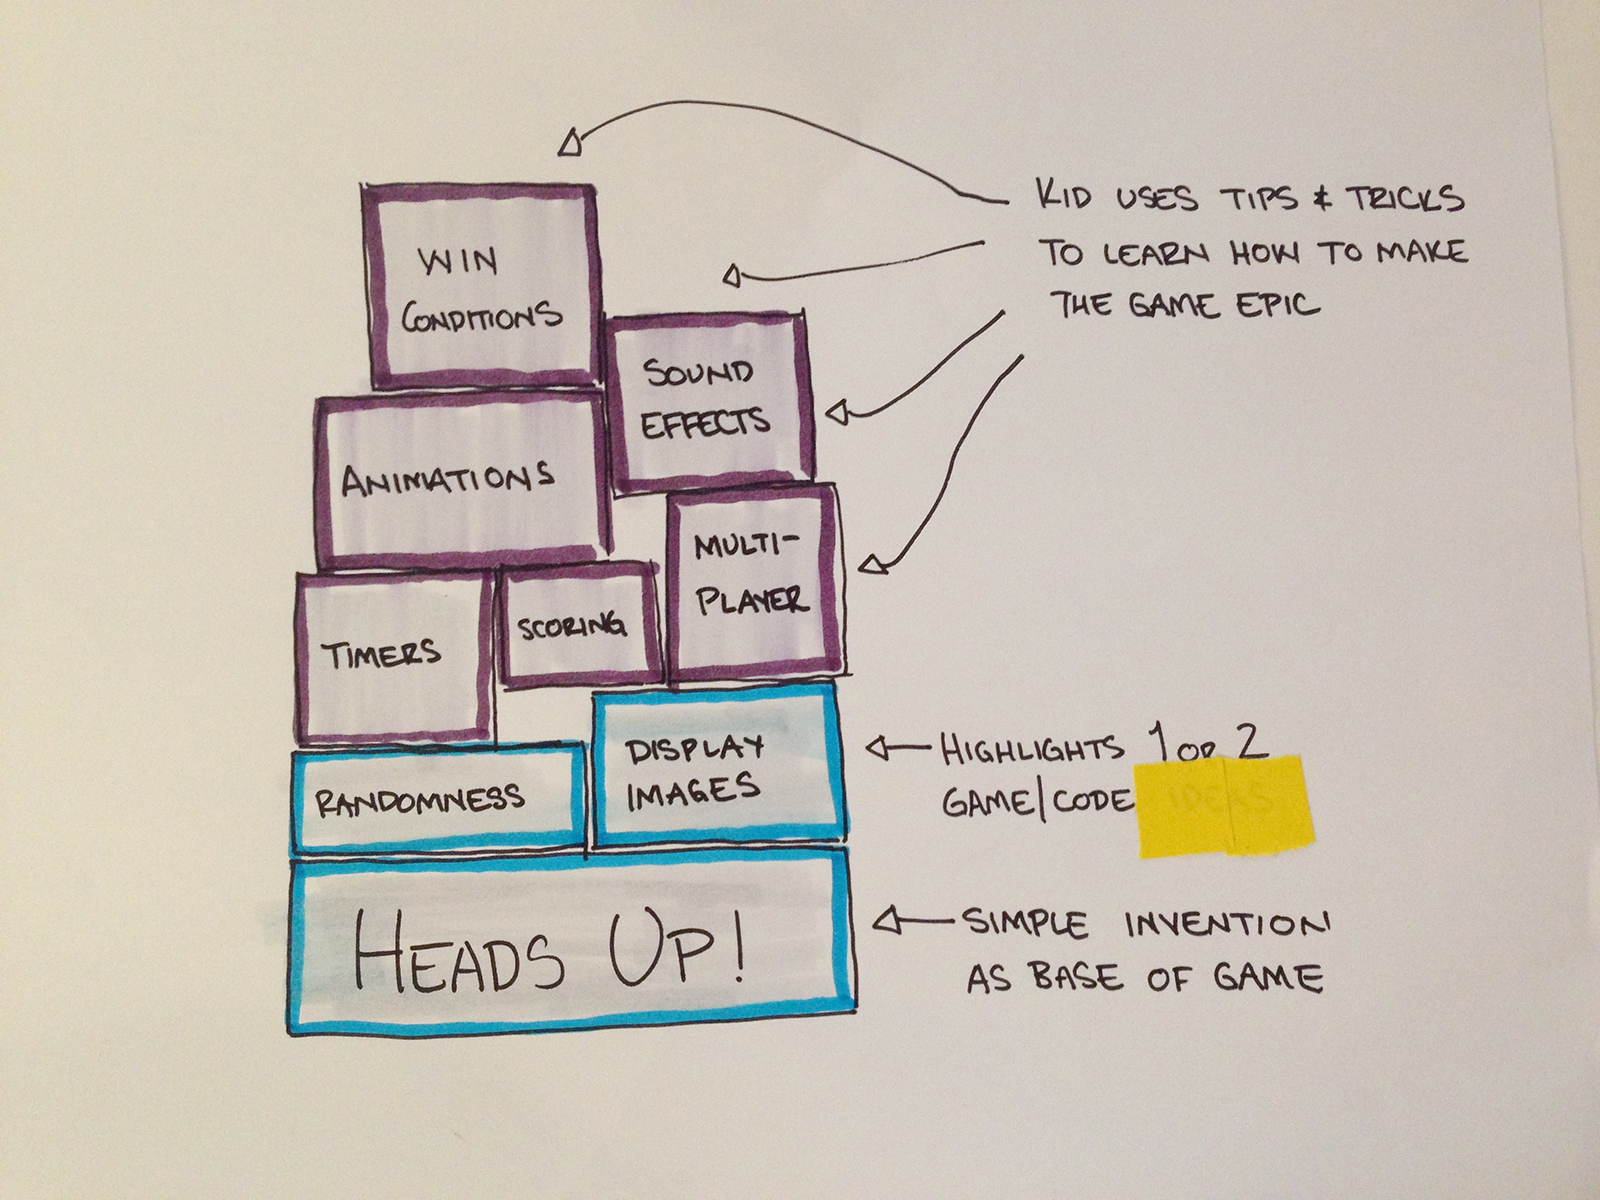 WIN
CONDITIONS
SOUND
EFFECTS
ANIMATIONS
MULTI-
PLAYER
TIMERS
SCORING
RANDOMNESS
DISPLAY
IMAGES
HEADS UP!
KID USES TIPS & TRICKS
TO LEARN HOW TO MAKE
THE GAME EPIC
HIGHLIGHTS 1 OR 2
GAME/CODE IDEAS
SIMPLE INVENTION
AS BASE OF GAME